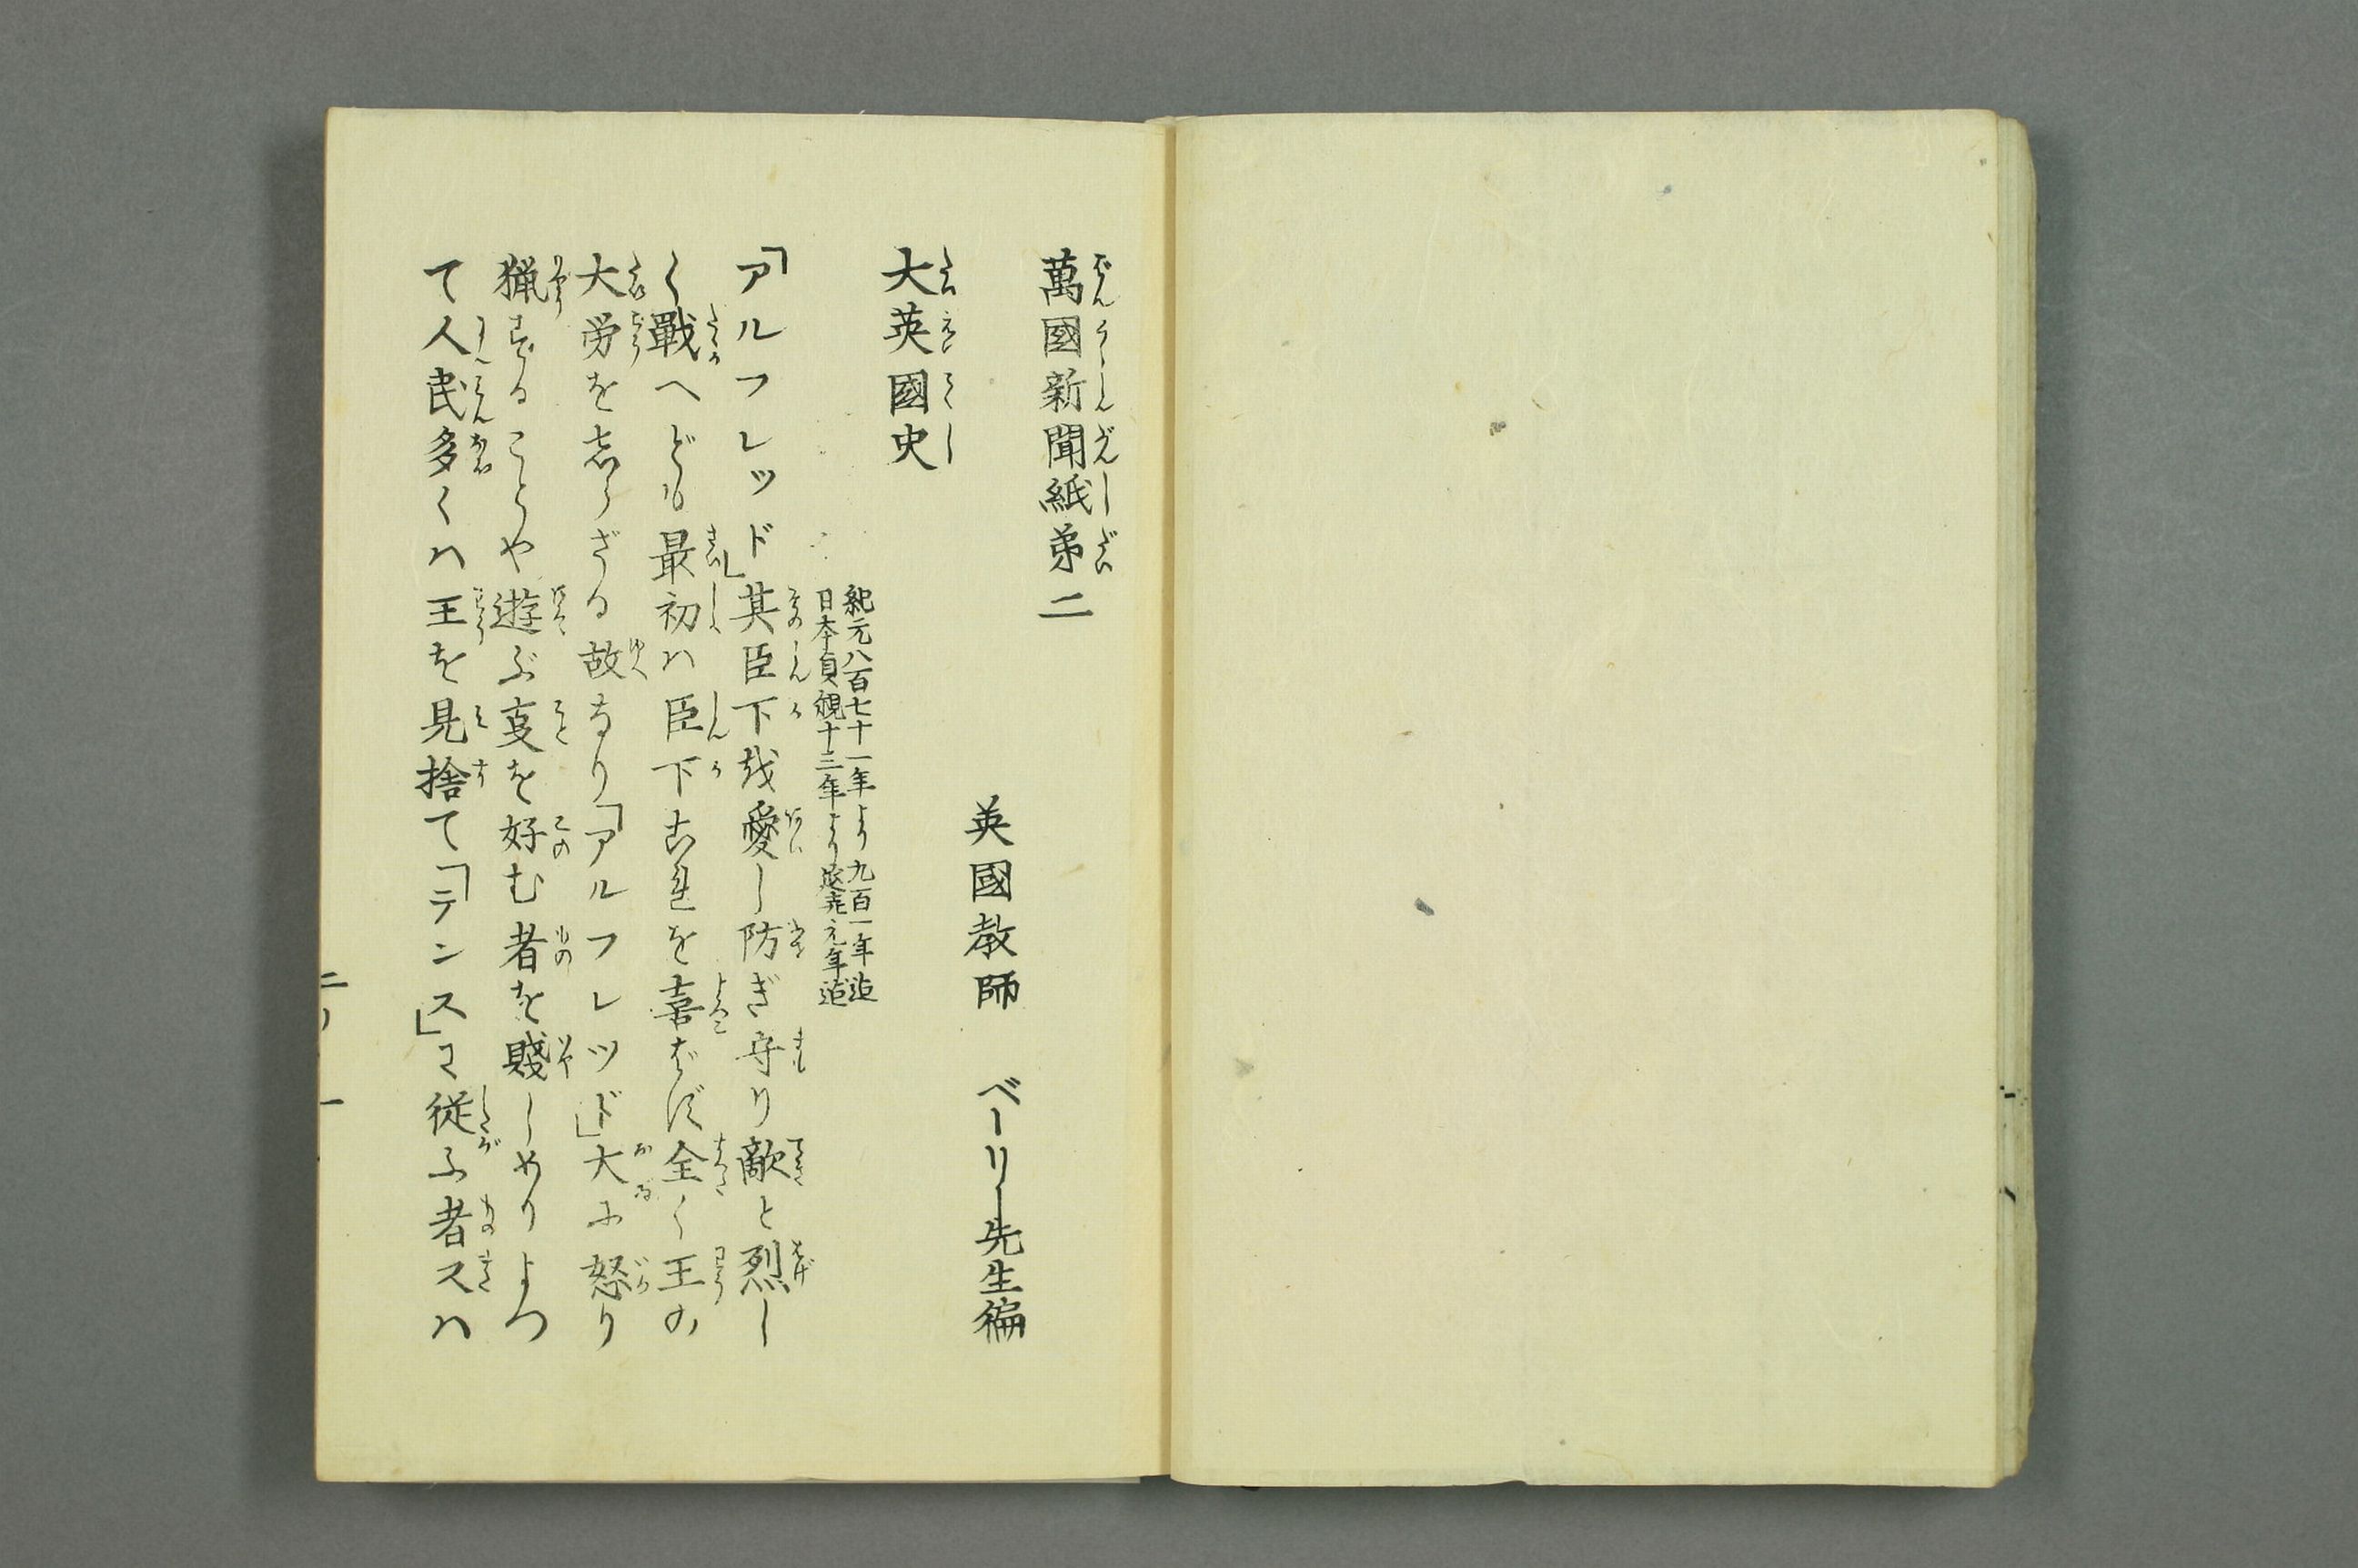 萬國新聞紙弟二
英國教師 ベーリー先生編
大英國史
紀元八百七十一年より九百一年迄
日本貞觀十三年より延㐂元年迄
「アルフレッド」其臣下を愛し防ぎ守り敵と烈し
く戰へども最初ハ臣下これを喜ばず全く王の
大労を志らざる故なり「アルフレッド」大に怒り
猟することや遊ぶ叓を好む者を賤しめりよつ
て人民多くハ王を見捨て「テンス」に従ふ者又ハ
二ノ 一